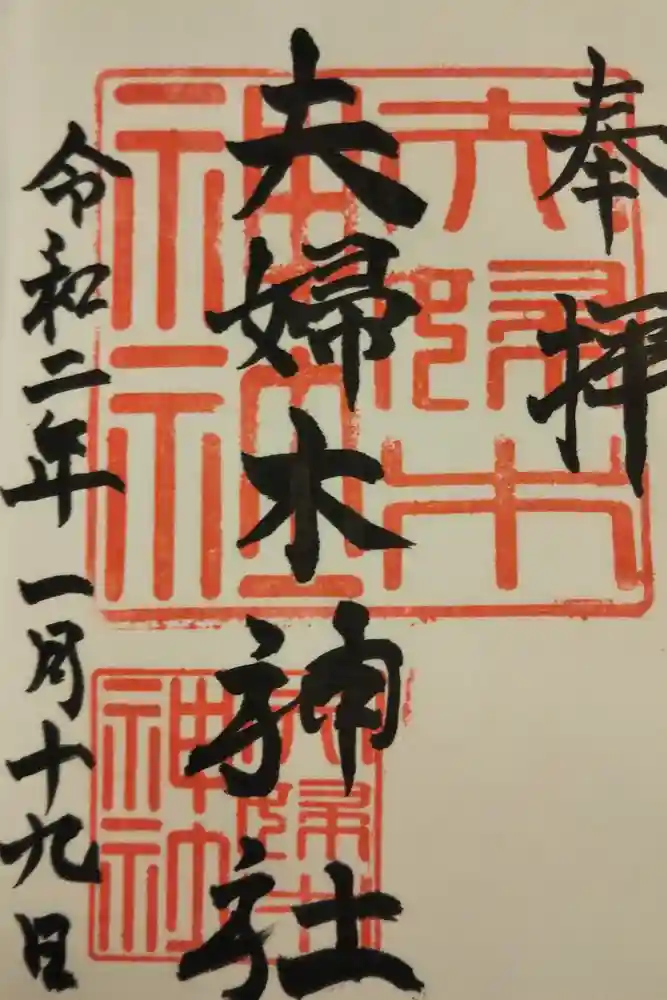 奉拝
夫婦木神社
令和二年一月十九日
夫婦木
神社
夫婦木
神社